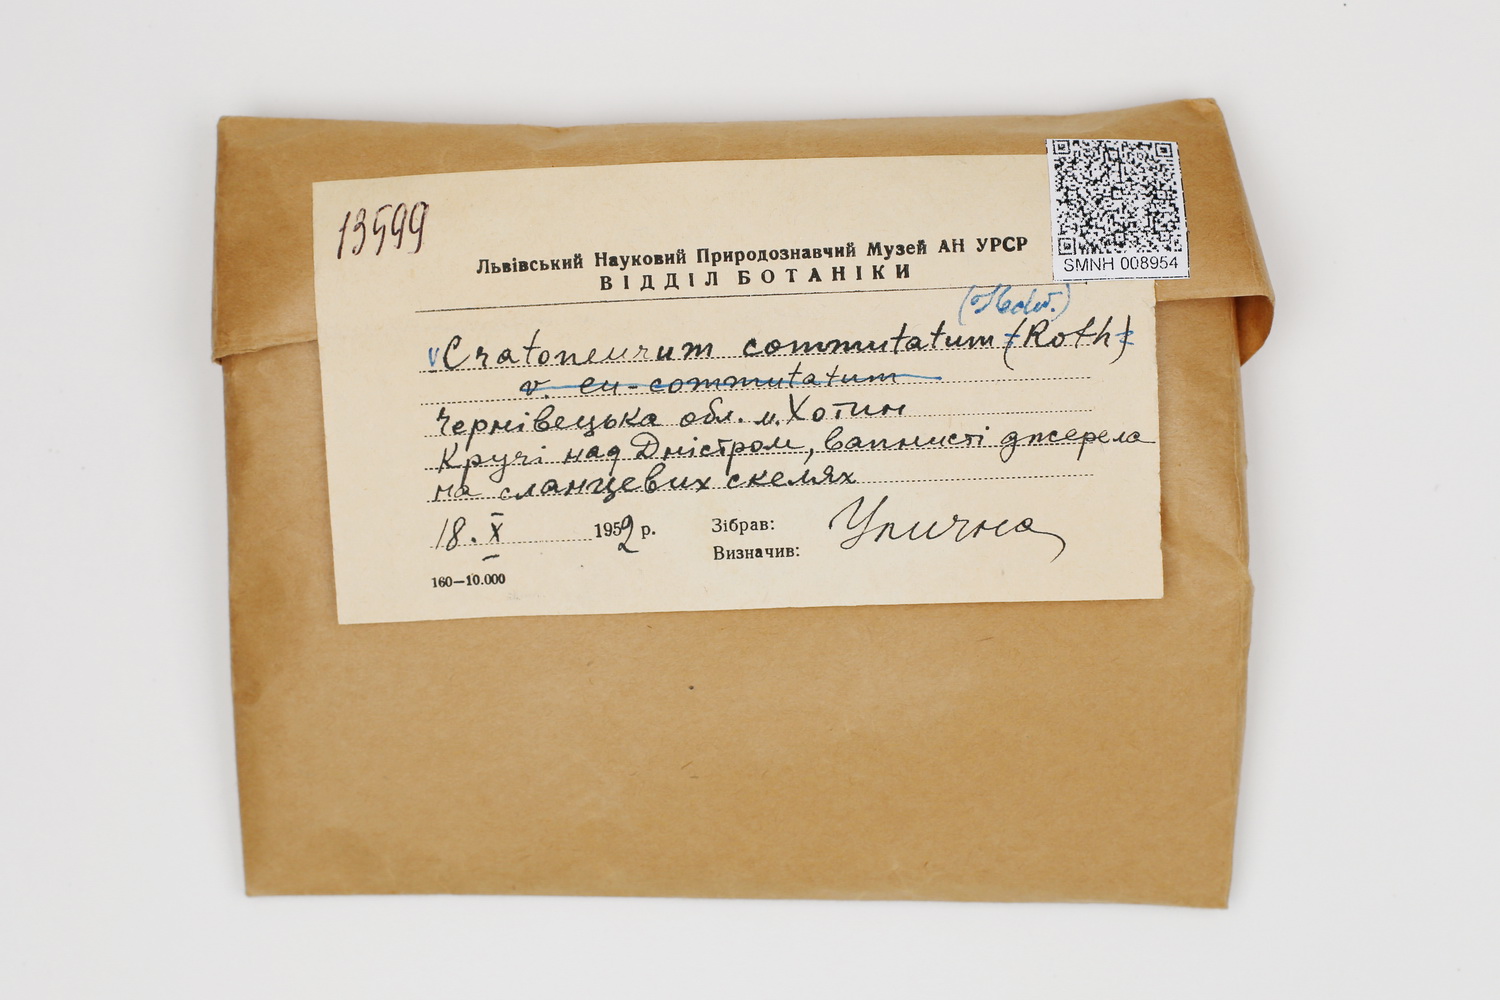 13599
SMNH 008954
Львівський Науковий Природознавчий Музей АН УРСР
ВІДДІЛ БОТАНІКИ
(Hedw.)
v Cratoneurum commutatum (Roth)
v. eu-commutatum
Чернівецька обл. м. Хотин
Кручі над Дністром, вапнисті джерела
на сланцевих скелях
18. X 1952 р. Зібрав: Улична
Визначив:
160—10.000